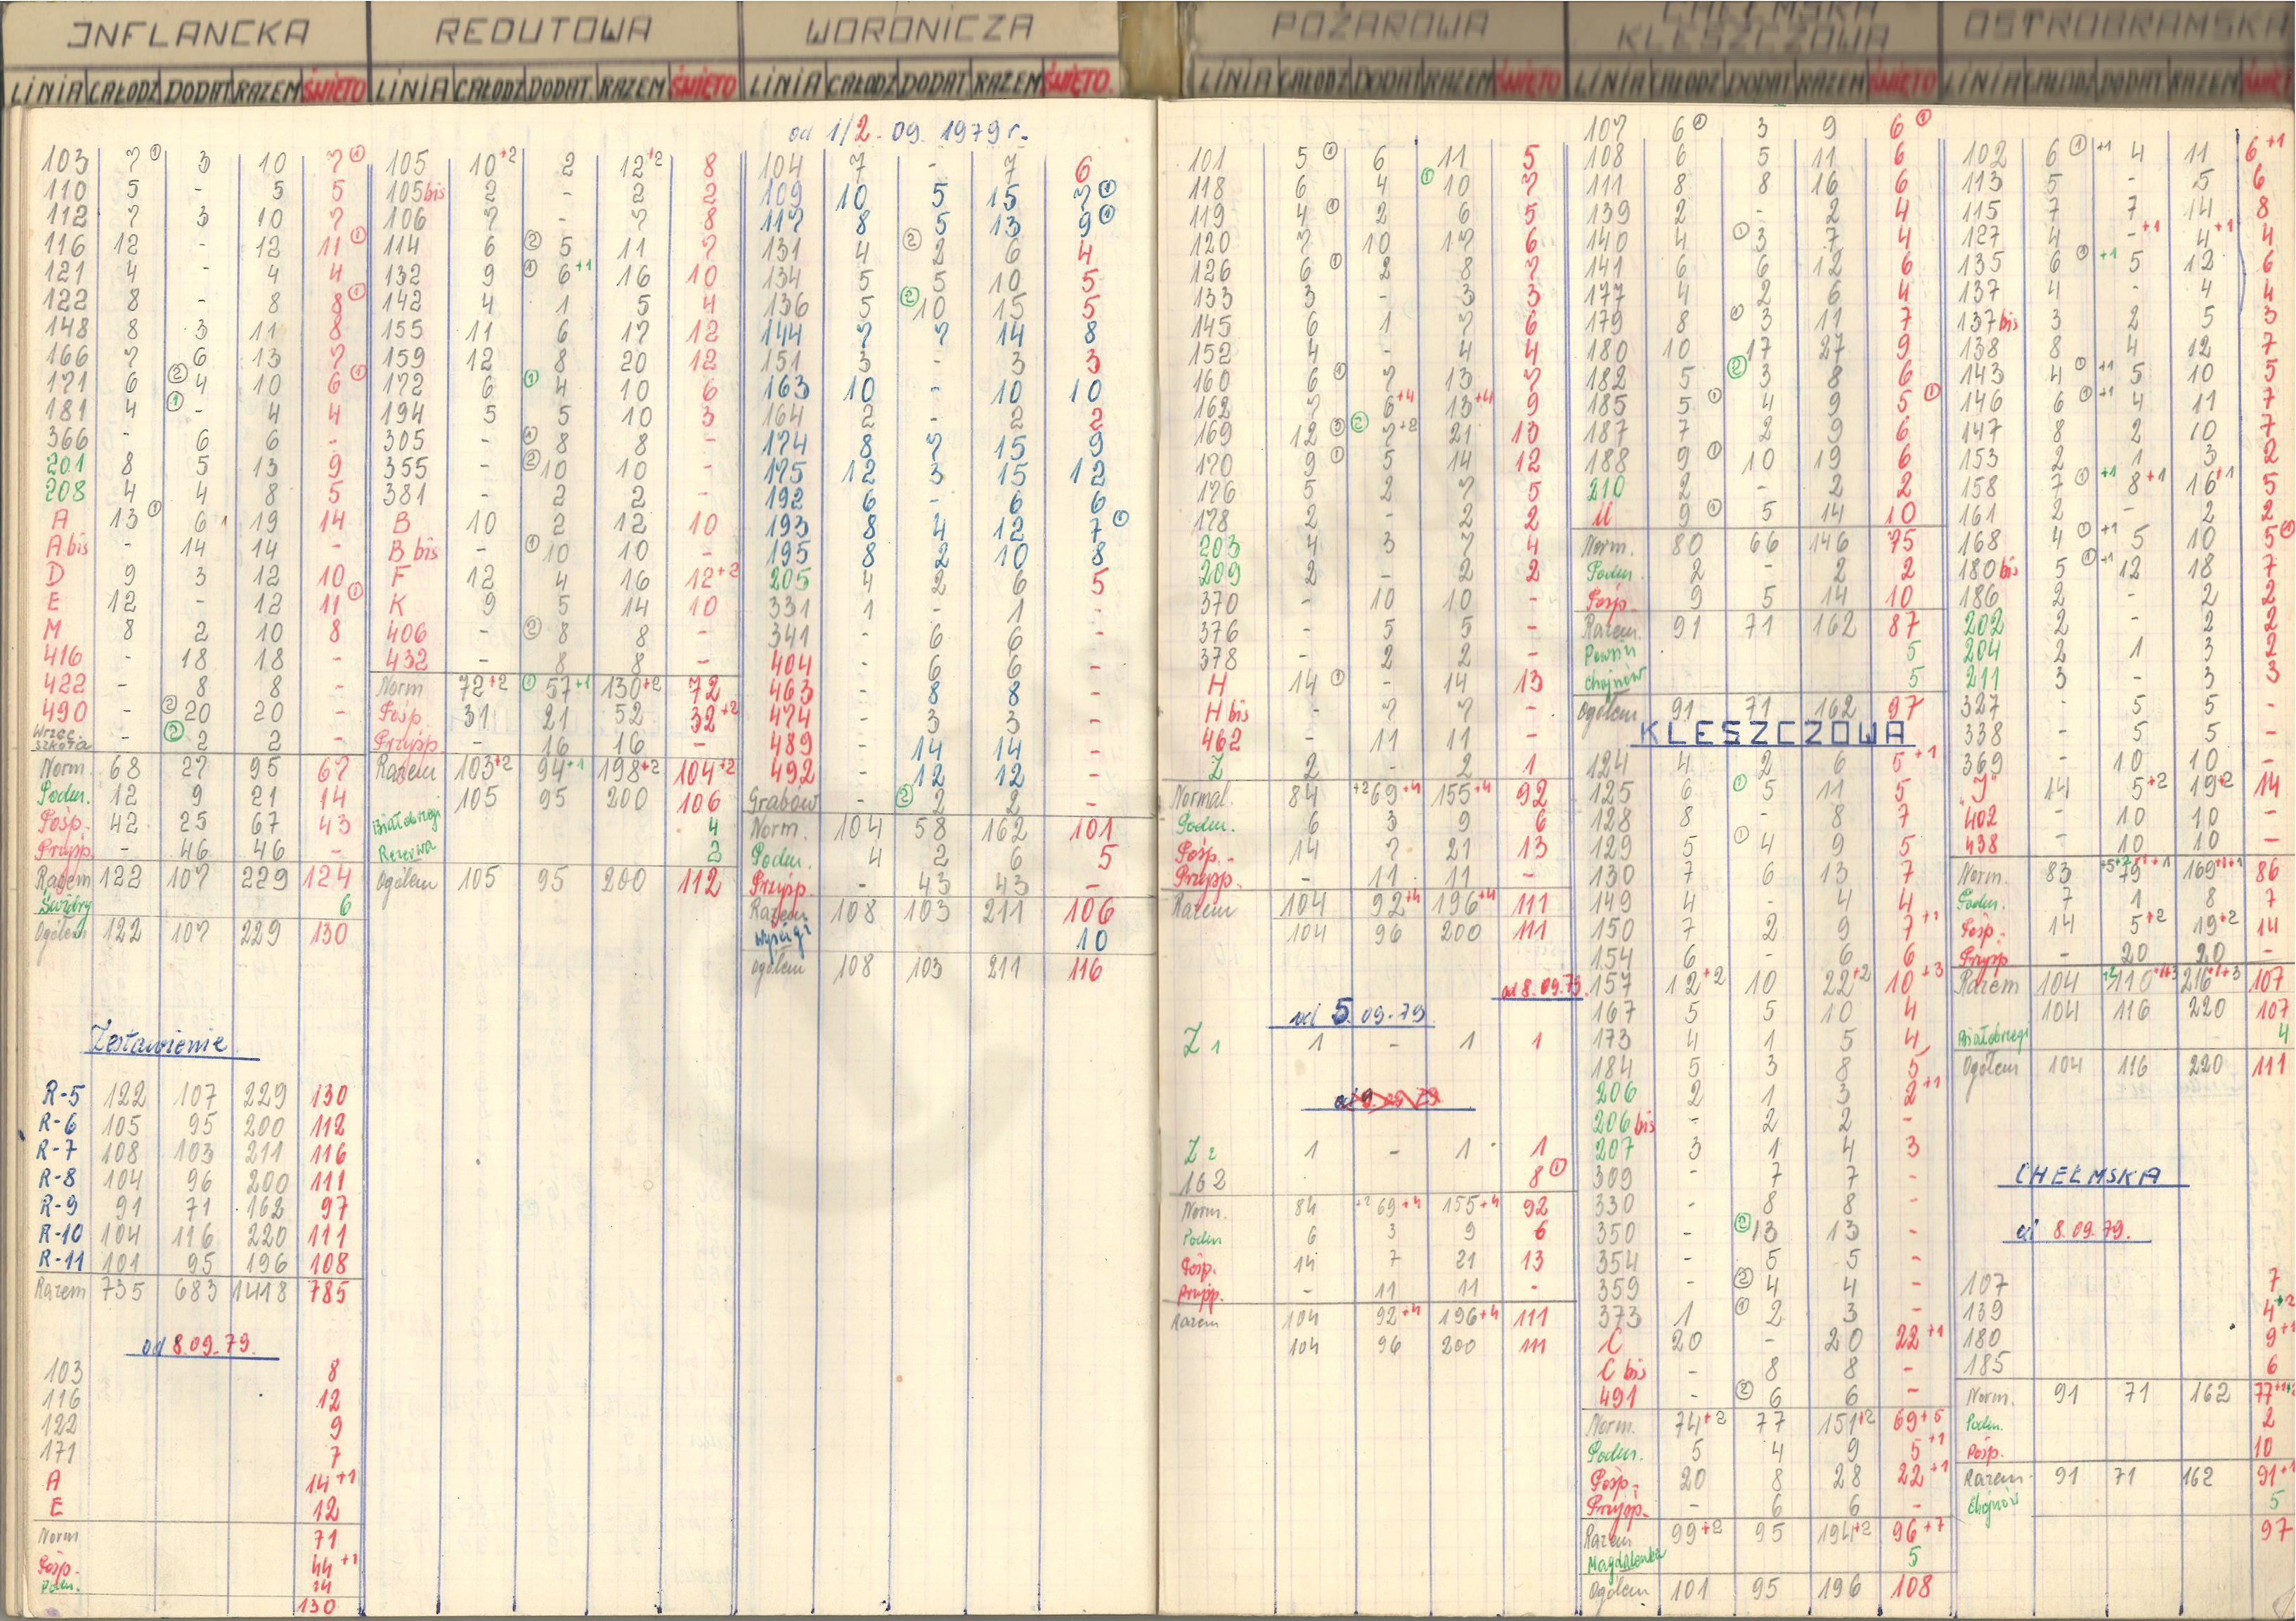 INFLANCKA
LINIA CAŁODZ DODAT RAZEM ŚWIĘTO
103 7① 3 10 7①
110 5 - 5 5
112 7 3 10 7
116 12 - 12 11①
121 4 - 4 4
122 8 - 8 8①
148 8 3 11 8
166 7 6 13 7
171 6 ②4 10 6①
181 4 ①- 4 4
366 - 6 6 -
201 8 5 13 9
208 4 4 8 5
A 13① 6 19 14
A bis - 14 14 -
D 9 3 12 10
E 12 - 12 11①
M 8 2 10 8
416 - 18 18 -
422 - 8 8 -
490 - ②20 20 -
Wrzec. szkoła - ②2 2 -
Norm. 68 27 95 67
Podm. 12 9 21 14
Posp. 42 25 67 43
Przysp. - 46 46 -
Razem 122 107 229 124
6
Ogółem 122 107 229 130
Zestawienie
R-5 122 107 229 130
R-6 105 95 200 112
R-7 108 103 211 116
R-8 104 96 200 111
R-9 91 71 162 97
R-10 104 116 220 111
R-11 101 95 196 108
Razem 735 683 1418 785
od 8.09.79.
103 8
116 12
122 9
171 7
A 14+1
E 12
Norm 71
Posp. 44+1
Podm. 14
130
REDUTOWA
LINIA CAŁODZ DODAT. RAZEM ŚWIĘTO
105 10+2 2 12+2 8
105bis 2 - 2 2
106 7 - 7 8
114 6 ②5 11 7
132 9 ①6+1 16 10
142 4 1 5 4
155 11 6 17 12
159 12 8 20 12
172 6 ①4 10 6
194 5 5 10 3
305 - ①8 8 -
355 - ②10 10 -
381 - 2 2 -
B 10 2 12 10
B bis - ①10 10 -
F 12 4 16 12+2
K 9 5 14 10
406 - ②8 8 -
432 - 8 8 -
Norm 72+2 ①57+1 130+2 72
Posp. 31 21 52 32+2
Przysp - 16 16 -
Razem 103+2 94+1 198+2 104+2
105 95 200 106
Białobrzegi 4
Rezerwa 2
Ogółem 105 95 200 112
WORONICZA
LINIA CAŁODZ DODAT RAZEM ŚWIĘTO.
od 1/2.09.1979r.
104 7 - 7 6
109 10 5 15 7①
117 8 5 13 9①
131 4 ②2 6 4
134 5 5 10 5
136 5 ②10 15 5
144 7 7 14 8
151 3 - 3 3
163 10 - 10 10
164 2 - 2 2
174 8 7 15 9
175 12 3 15 12
192 6 - 6 6
193 8 4 12 7①
195 8 2 10 8
205 4 2 6 5
331 1 - 1 -
341 - 6 6 -
404 - 6 6 -
463 - 8 8 -
474 - 3 3 -
489 - 14 14 -
492 - 12 12 -
Grabów - ②2 2 -
Norm. 104 58 162 101
Podm. 4 2 6 5
Przysp. - 43 43 -
Razem 108 103 211 106
10
Ogółem 108 103 211 116
POŻAROWA
LINIA CAŁODZ DODAT RAZEM ŚWIĘTO
101 5① 6 11 5
118 6 4 ①10 7
119 4① 2 6 5
120 7 10 17 6
126 6① 2 8 7
133 3 - 3 3
145 6 1 7 6
152 4 - 4 4
160 6① 7 13 7
162 7 6+4 13+4 9
169 12③ ②7+2 21 13
170 9① 5 14 12
176 5 2 7 5
178 2 - 2 2
203 4 3 7 4
209 2 - 2 2
370 - 10 10 -
376 - 5 5 -
378 - 2 2 -
H 14① - 14 13
H bis - 7 7 -
462 - 11 11 -
Z 2 - 2 1
Normal. 84 +2 69+4 155+4 92
Podm. 6 3 9 6
Posp. 14 7 21 13
Przysp. - 11 11 -
Razem 104 92+4 196+4 111
104 96 200 111
od 8.09.79.
od 5.09.79.
Z1 1 - 1 1
Z2 1 - 1 1
162 8①
Norm. 84 +2 69+4 155+4 92
Podm 6 3 9 6
Posp. 14 7 21 13
Przysp. - 11 11 -
Razem 104 92+4 196+4 111
104 96 200 111
CHEŁMSKA
KLESZCZOWA
LINIA CAŁODZ DODAT. RAZEM ŚWIĘTO
107 6① 3 9 6①
108 6 5 11 6
111 8 8 16 6
139 2 - 2 4
140 4 ①3 7 4
141 6 6 12 6
177 4 2 6 4
179 8 ①3 11 7
180 10 17 27 9
182 5 ②3 8 6
185 5① 4 9 5①
187 7 2 9 6
188 9① 10 19 6
210 2 - 2 2
U 9① 5 14 10
Norm. 80 66 146 75
Podm. 2 - 2 2
Posp. 9 5 14 10
Razem. 91 71 162 87
5
Chojnów 5
Ogółem 91 71 162 97
KLESZCZOWA
124 4 2 6 5+1
125 6 ①5 11 5
128 8 - 8 7
129 5 ①4 9 5
130 7 6 13 7
149 4 - 4 4
150 7 2 9 7+1
154 6 - 6 6
157 12+2 10 22+2 10+3
167 5 5 10 4
173 4 1 5 4
184 5 3 8 5
206 2 1 3 2+1
206bis - 2 2 -
207 3 1 4 3
309 - 7 7 -
330 - 8 8 -
350 - ②13 13 -
354 - 5 5 -
359 - ②4 4 -
373 1 ①2 3 -
C 20 - 20 22+1
C bis - 8 8 -
491 - ②6 6 -
Norm. 74+2 77 151+2 69+5
Podm. 5 4 9 5+1
Posp. 20 8 28 22+1
Przysp. - 6 6 -
Razem 99+2 95 194+2 96+7
Magdalenka 5
Ogółem 101 95 196 108
OSTROBRAMSKA
LINIA CAŁODZ DODAT RAZEM
102 6①+1 4 11 6+1
113 5 - 5 6
115 7 7 14 8
127 4 -+1 4+1 4
135 6①+1 5 12 6
137 4 - 4 4
137bis 3 2 5 3
138 8 4 12 7
143 4①+1 5 10 5
146 6①+1 4 11 7
147 8 2 10 7
153 2 1 3 2
158 7①+1 8+1 16+1 5
161 2 - 2 2
168 4①+1 5 10 5①
180bis 5①+1 12 18 7
186 2 - 2 2
202 2 - 2 2
204 2 1 3 2
211 3 - 3 3
327 - 5 5 -
338 - 5 5 -
369 - 10 10 -
"J" 14 5+2 19+2 14
402 - 10 10 -
438 - 10 10 -
Norm. 83 86
Podm. 7 1 8 7
Posp. 14 5+2 19+2 14
Przysp - 20 20 -
Razem 104 107
104 116 220 107
Białobrzegi 4
Ogółem 104 116 220 111
CHEŁMSKA
od 8.09.79.
107 7
139 4+2
180 9+1
185 6
Norm. 91 71 162
Podm. 2
Posp. 10
Razem 91 71 162 91+1
Chojnów 5
97